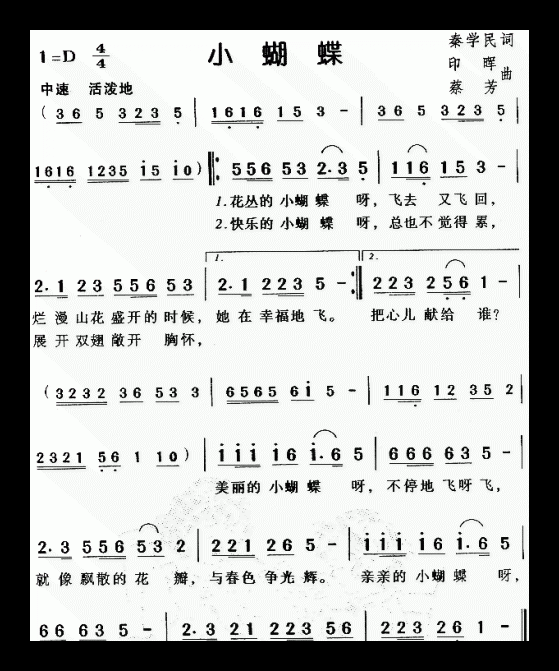 小 蝴 蝶
1=D 4/4
秦学民词
印 晖
蔡 芳 曲
中速 活泼地
( 36 5 323 5 | 1616 15 3 - | 36 5 323 5
1616 1235 i5 i0 ) ‖: 556 53 2·3 5 | 116 15 3 - |
1.花丛的 小蝴 蝶 呀, 飞去 又飞 回,
2.快乐的 小蝴 蝶 呀, 总也不 觉得 累,
2·1 23 556 53 | 1. 2·1 223 5 - :‖ 2. 223 256 1 - |
烂 漫 山花 盛开的 时候, 她 在 幸福地 飞。 把心儿 献给 谁?
展 开 双翅 敞开 胸怀,
( 3232 36 53 3 | 6565 6i 5 - | 116 12 35 2
2321 56 1 10 ) | iii i6 i·6 5 | 666 63 5 - |
美丽的 小蝴 蝶 呀, 不停地 飞呀 飞,
2·3 556 53 2 | 221 26 5 - | iii i6 i·6 5 |
就 像 飘散的 花 瓣, 与春色 争光 辉。 亲亲的 小蝴 蝶 呀,
66 63 5 - | 2·3 21 223 56 | 223 26 1 - ‖